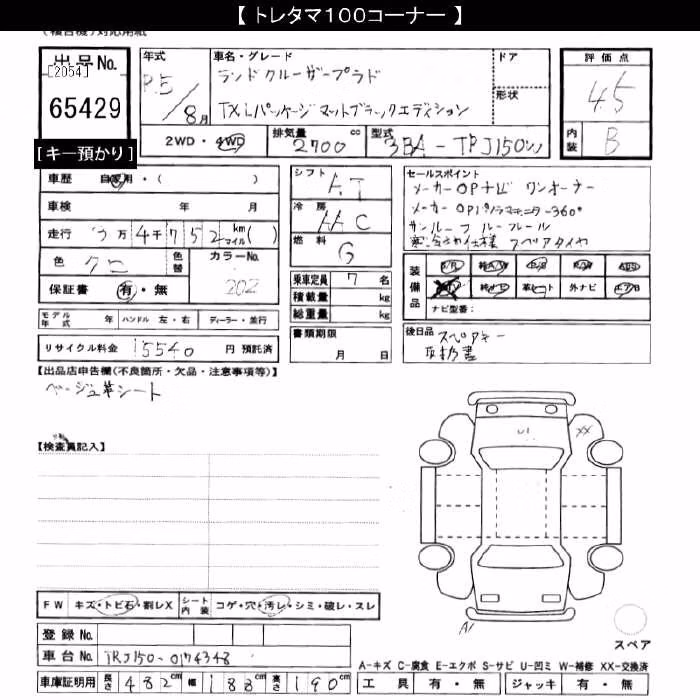 【 トレタマ１００コーナー 】
(複合機)対応用紙
出品No.
[2054]
65429
[キー預かり]
年式
R5/8月
車名・グレード
ランドクルーザープラド
TXLパッケージマットブラックエディション
ドア
形状
2WD・4WD
排気量 2700 cc
型式 3BA-TRJ150W
評価点
4.5
内装 B
車歴 自家用・( )
車検 年 月
走行 3万4千752 kmマイル( )
色 クロ
色替
カラーNo. 202
保証書 有・無
モデル年式 年 ハンドル 左・右 ディーラー・並行
リサイクル料金 15540 円預託済
シフト AT
冷房 AAC
燃料 G
乗車定員 7 名
積載量 kg
総重量 kg
書類期限
月 日
セールスポイント
メーカーOPナビ ワンオーナー
メーカーOPパノラマモニター360°
サンルーフ ルーフレール
寒冷地仕様 スペアタイヤ
装備品
純ナビ 革シート 外ナビ エアB
ナビ型番:
後日品 スペアキー
取扱書
【出品店申告欄(不良箇所・欠品・注意事項等)】
ベージュ革シート
【検査員記入】
U1
XX
A1
スペア
FW キズ・トビ石・割レX
シート内装 コゲ・穴・汚レ・シミ・破レ・スレ
登録No.
車台No. TRJ150-0174348
車庫証明用 長さ 482cm 幅 188cm 高さ 190cm
A-キズ C-腐食 E-エクボ S-サビ U-凹ミ W-補修 XX-交換済
工具 有・無 ジャッキ 有・無